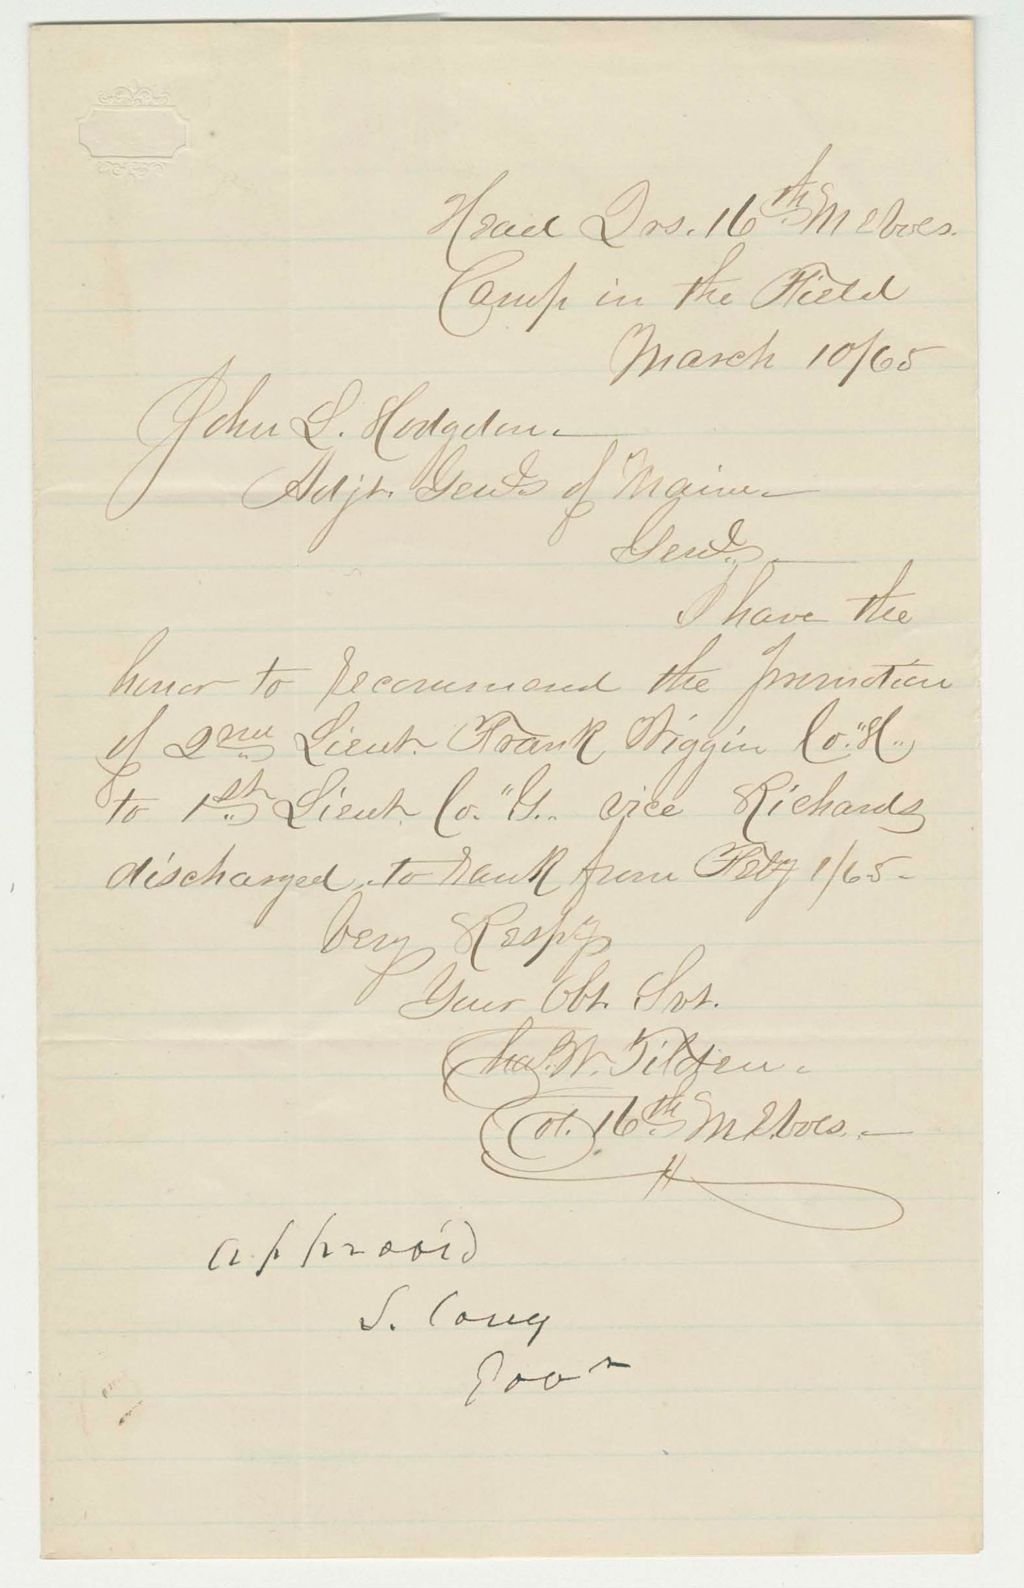 Head Qrs. 16th Me Vols.
Camp in the Field
March 10/65
John L. Hodgdon.
Adjt. Genl. of Maine
Genl.
I have the
honor to recommend the promotion
of 2nd Lieut. Frank Wiggin Co. "H"
to 1st Lieut. Co. "G" vice Richards
discharged, to rank from Feby 1/65
Very Respy
Your Obt. Svt.
Chas. W. Tilden.
Col. 16th Me Vols.
approv'd
S. Cony
Govr